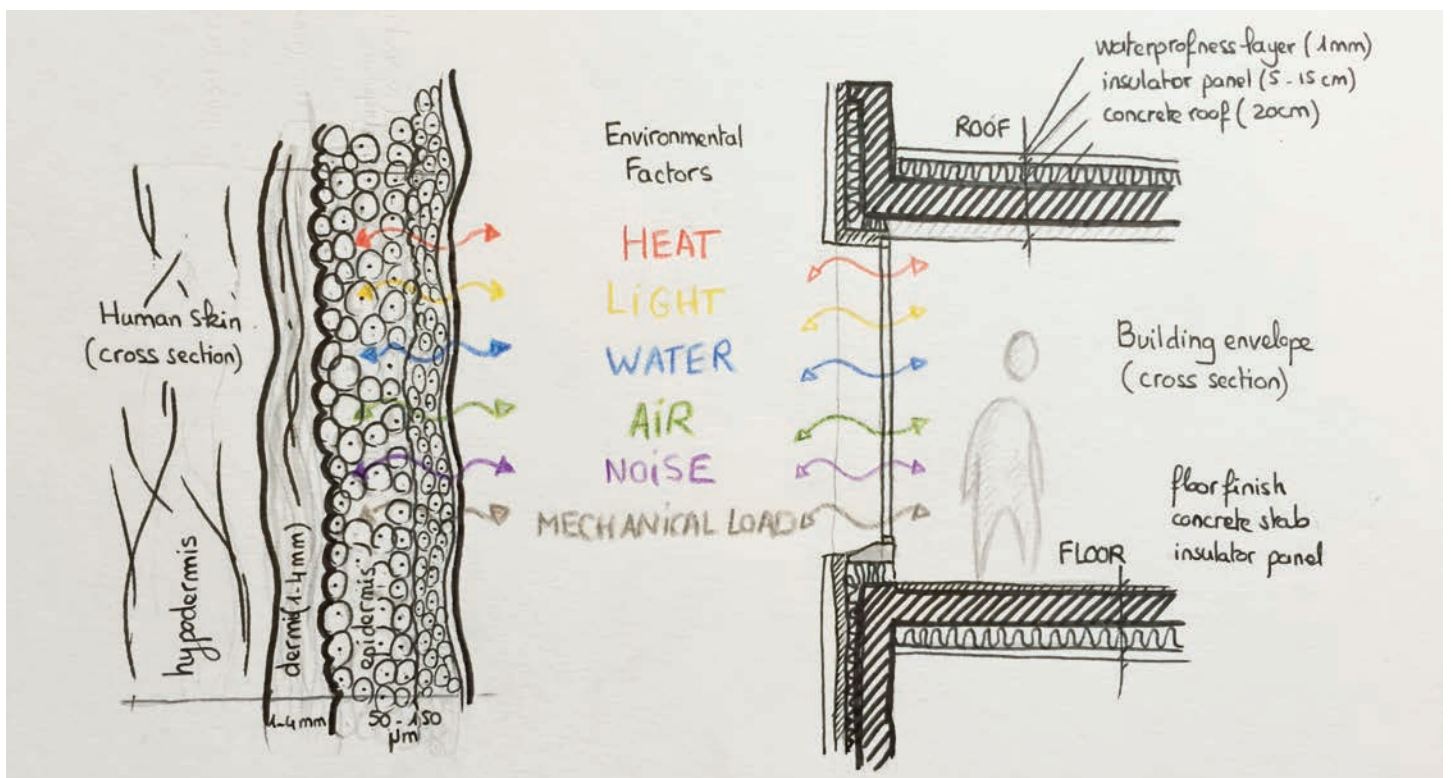 Human skin
(cross section)
hypodermis
dermis (1-4mm)
epidermis
1-4mm
50-150
µm
Environmental
Factors
HEAT
LIGHT
WATER
AIR
NOISE
MECHANICAL LOAD
waterprofness layer (1mm)
insulator panel (5-15cm)
concrete roof (20cm)
ROOF
Building envelope
(cross section)
floor finish
concrete slab
insulator panel
FLOOR